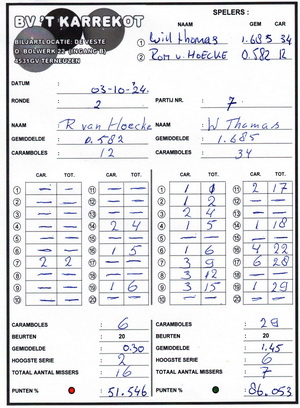 BV 'T KARREKOT
BILJARTLOCATIE: DE VESTE
O. BOLWERK 22 (INGANG B)
4531GV TERNEUZEN
SPELERS :
NAAM GEM CAR
1 Will Thomas 1.685 34
2 Ron v. HOECKE 0.582 12
DATUM : 03-10-24
RONDE : 2 PARTIJ NR. : 7
NAAM : R van Hoecke NAAM : W Thomas
GEMIDDELDE : 0.582 GEMIDDELDE : 1.685
CARAMBOLES : 12 CARAMBOLES : 34
CAR. TOT. CAR. TOT. CAR. TOT. CAR. TOT.
1 — — 11 — — 1 1 1 11 2 17
2 — — 12 — — 2 1 2 12 — —
3 — — 13 — — 3 2 4 13 — —
4 — — 14 2 4 4 1 5 14 1 18
5 — — 15 — — 5 — — 15 — —
6 — — 16 1 5 6 1 6 16 4 22
7 2 2 17 — — 7 3 9 17 6 28
8 — — 18 — — 8 3 12 18 — —
9 — — 19 1 6 9 3 15 19 1 29
10 — — 20 — — 10 — — 20 — —
CARAMBOLES : 6 : 29
BEURTEN : 20 : 20
GEMIDDELDE : 0.30 : 1.45
HOOGSTE SERIE : 2 : 6
TOTAAL AANTAL MISSERS : 16 : 7
PUNTEN % : 51.546 PUNTEN % : 86.053